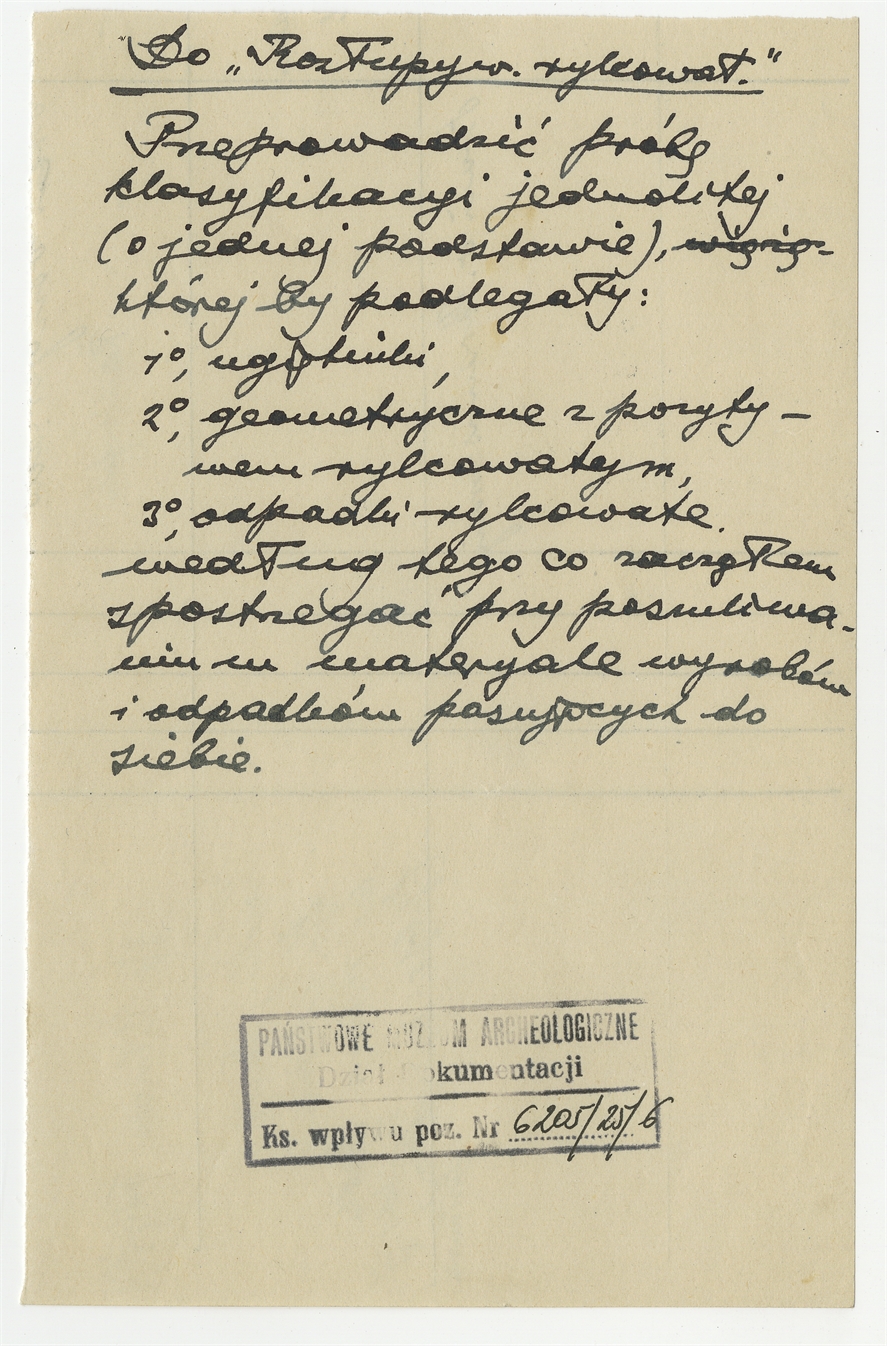 Do „Rozłupyw. rylcowat.“
Przeprowadzić próbę
klasyfikacyi jednolitej
(o jednej podstawie),
której by podlegały:
1º, węgłowniki,
2º, geometryczne z pozyty-
wem rylcowatym,
3º, odpadki rylcowate.
według tego co zacząłem
spostrzegać przy poszukiwa-
niu w materyale wyrobów
i odpadków pasujących do
siebie.
PAŃSTWOWE MUZEUM ARCHEOLOGICZNE
Dział Dokumentacji
Ks. wpływu poz. Nr 6205/25/6